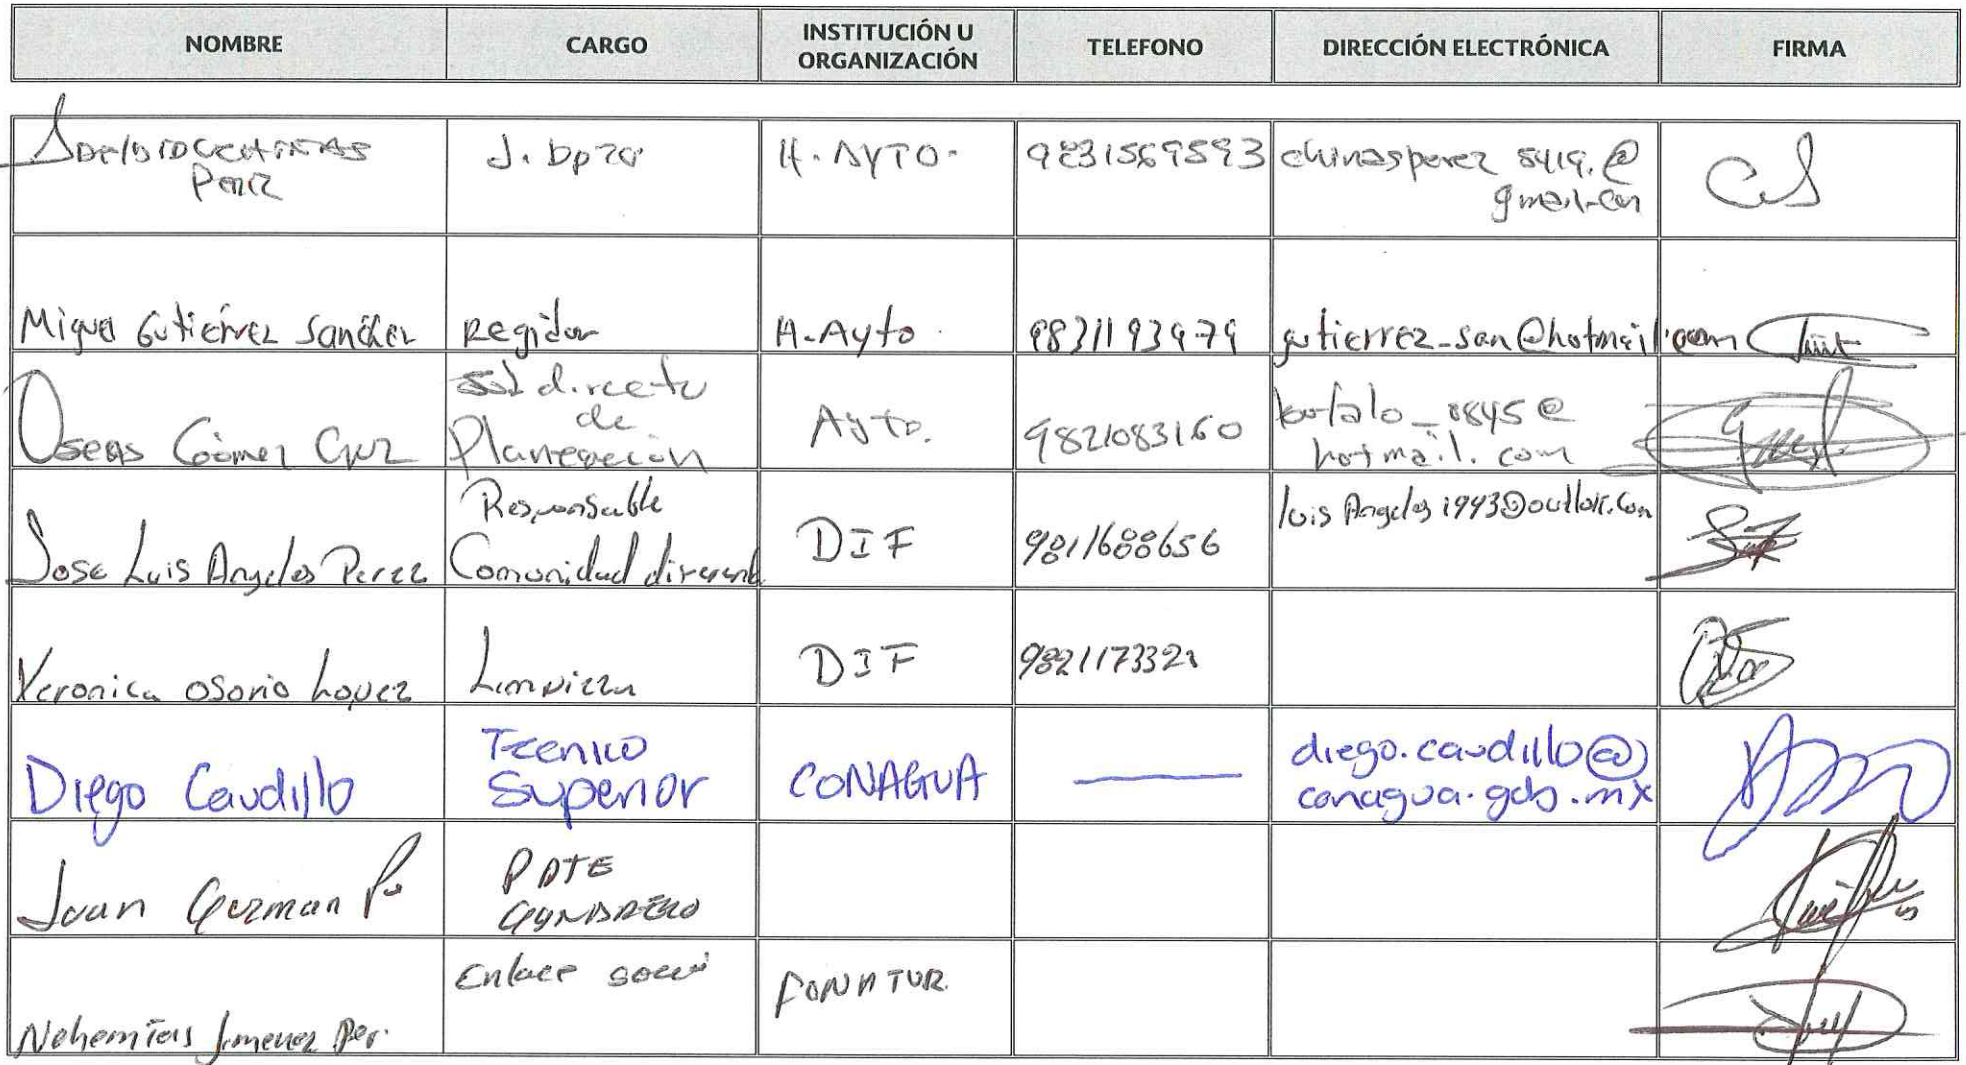 NOMBRE
CARGO
INSTITUCIÓN U
ORGANIZACIÓN
TELEFONO
DIRECCIÓN ELECTRÓNICA
FIRMA
Perez
H. AYTO.
9831569593
chinasperez 8419.@
gmail.com
Miguel Gutierrez Sanchez
Regidor
H. Ayto.
9831193979
gutierrez_san@hotmail.com
Oseas Gómez Cruz
Sub directo
de
Planeación
Ayto.
9821083160
bufalo_8845@
hotmail.com
Jose Luis Angeles Perez
Responsable
Comunidad diferente
DIF
9811688656
luis Angeles 1993@outlook.com
Veronica Osorio Lopez
Limpieza
DIF
9821173321
Diego Caudillo
Tecnico
Superior
CONAGUA
diego.caudillo@
conagua.gob.mx
Juan Guzman P.
PDTE
GANADERO
Nehemias Jimenez Per.
Enlace social
FONATUR